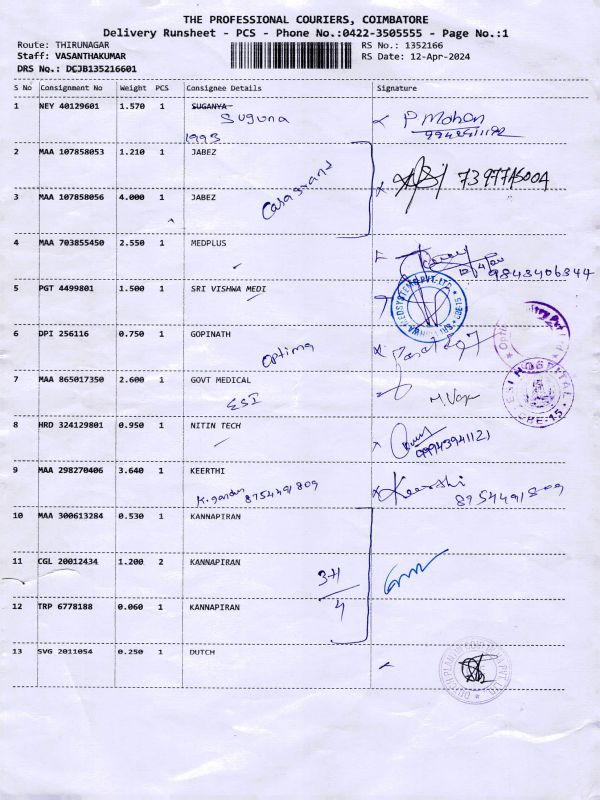 THE PROFESSIONAL COURIERS, COIMBATORE
Delivery Runsheet - PCS - Phone No.:0422-3505555 - Page No.:1
Route: THIRUNAGAR RS No.: 1352166
Staff: VASANTHAKUMAR RS Date: 12-Apr-2024
DRS No.: DCJB135216601
S No Consignment No Weight PCS Consignee Details Signature
1 NEY 40129601 1.570 1 SUGANYA
Suguna P Mohan
1993
2 MAA 107858053 1.210 1 JABEZ
Casagrand
3 MAA 107858056 4.000 1 JABEZ
4 MAA 703855450 2.550 1 MEDPLUS
9843406344
5 PGT 4499801 1.500 1 SRI VISHWA MEDI
6 DPI 256116 0.750 1 GOPINATH
Optima
7 MAA 865017350 2.600 1 GOVT MEDICAL
ESI
ESI HOSPITAL CBE-15
8 HRD 324129801 0.950 1 NITIN TECH
9994394121
9 MAA 298270406 3.640 1 KEERTHI
8754491809 Keerthi
8754491809
10 MAA 300613284 0.530 1 KANNAPIRAN
11 CGL 20012434 1.200 2 KANNAPIRAN
3+1
4
12 TRP 6778188 0.060 1 KANNAPIRAN
13 SVG 2011054 0.250 1 DUTCH